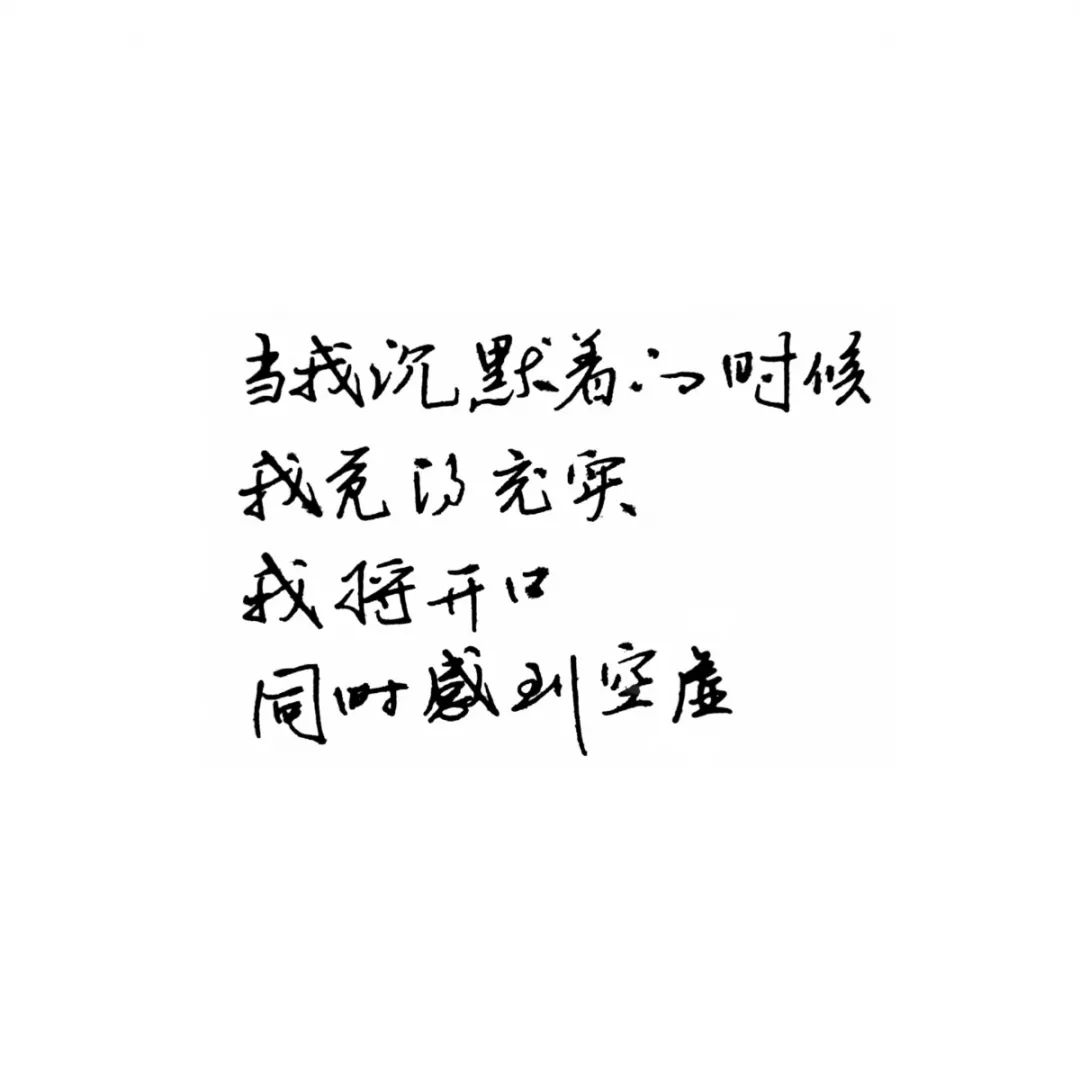 当我沉默着的时候
我觉得充实
我将开口
同时感到空虚